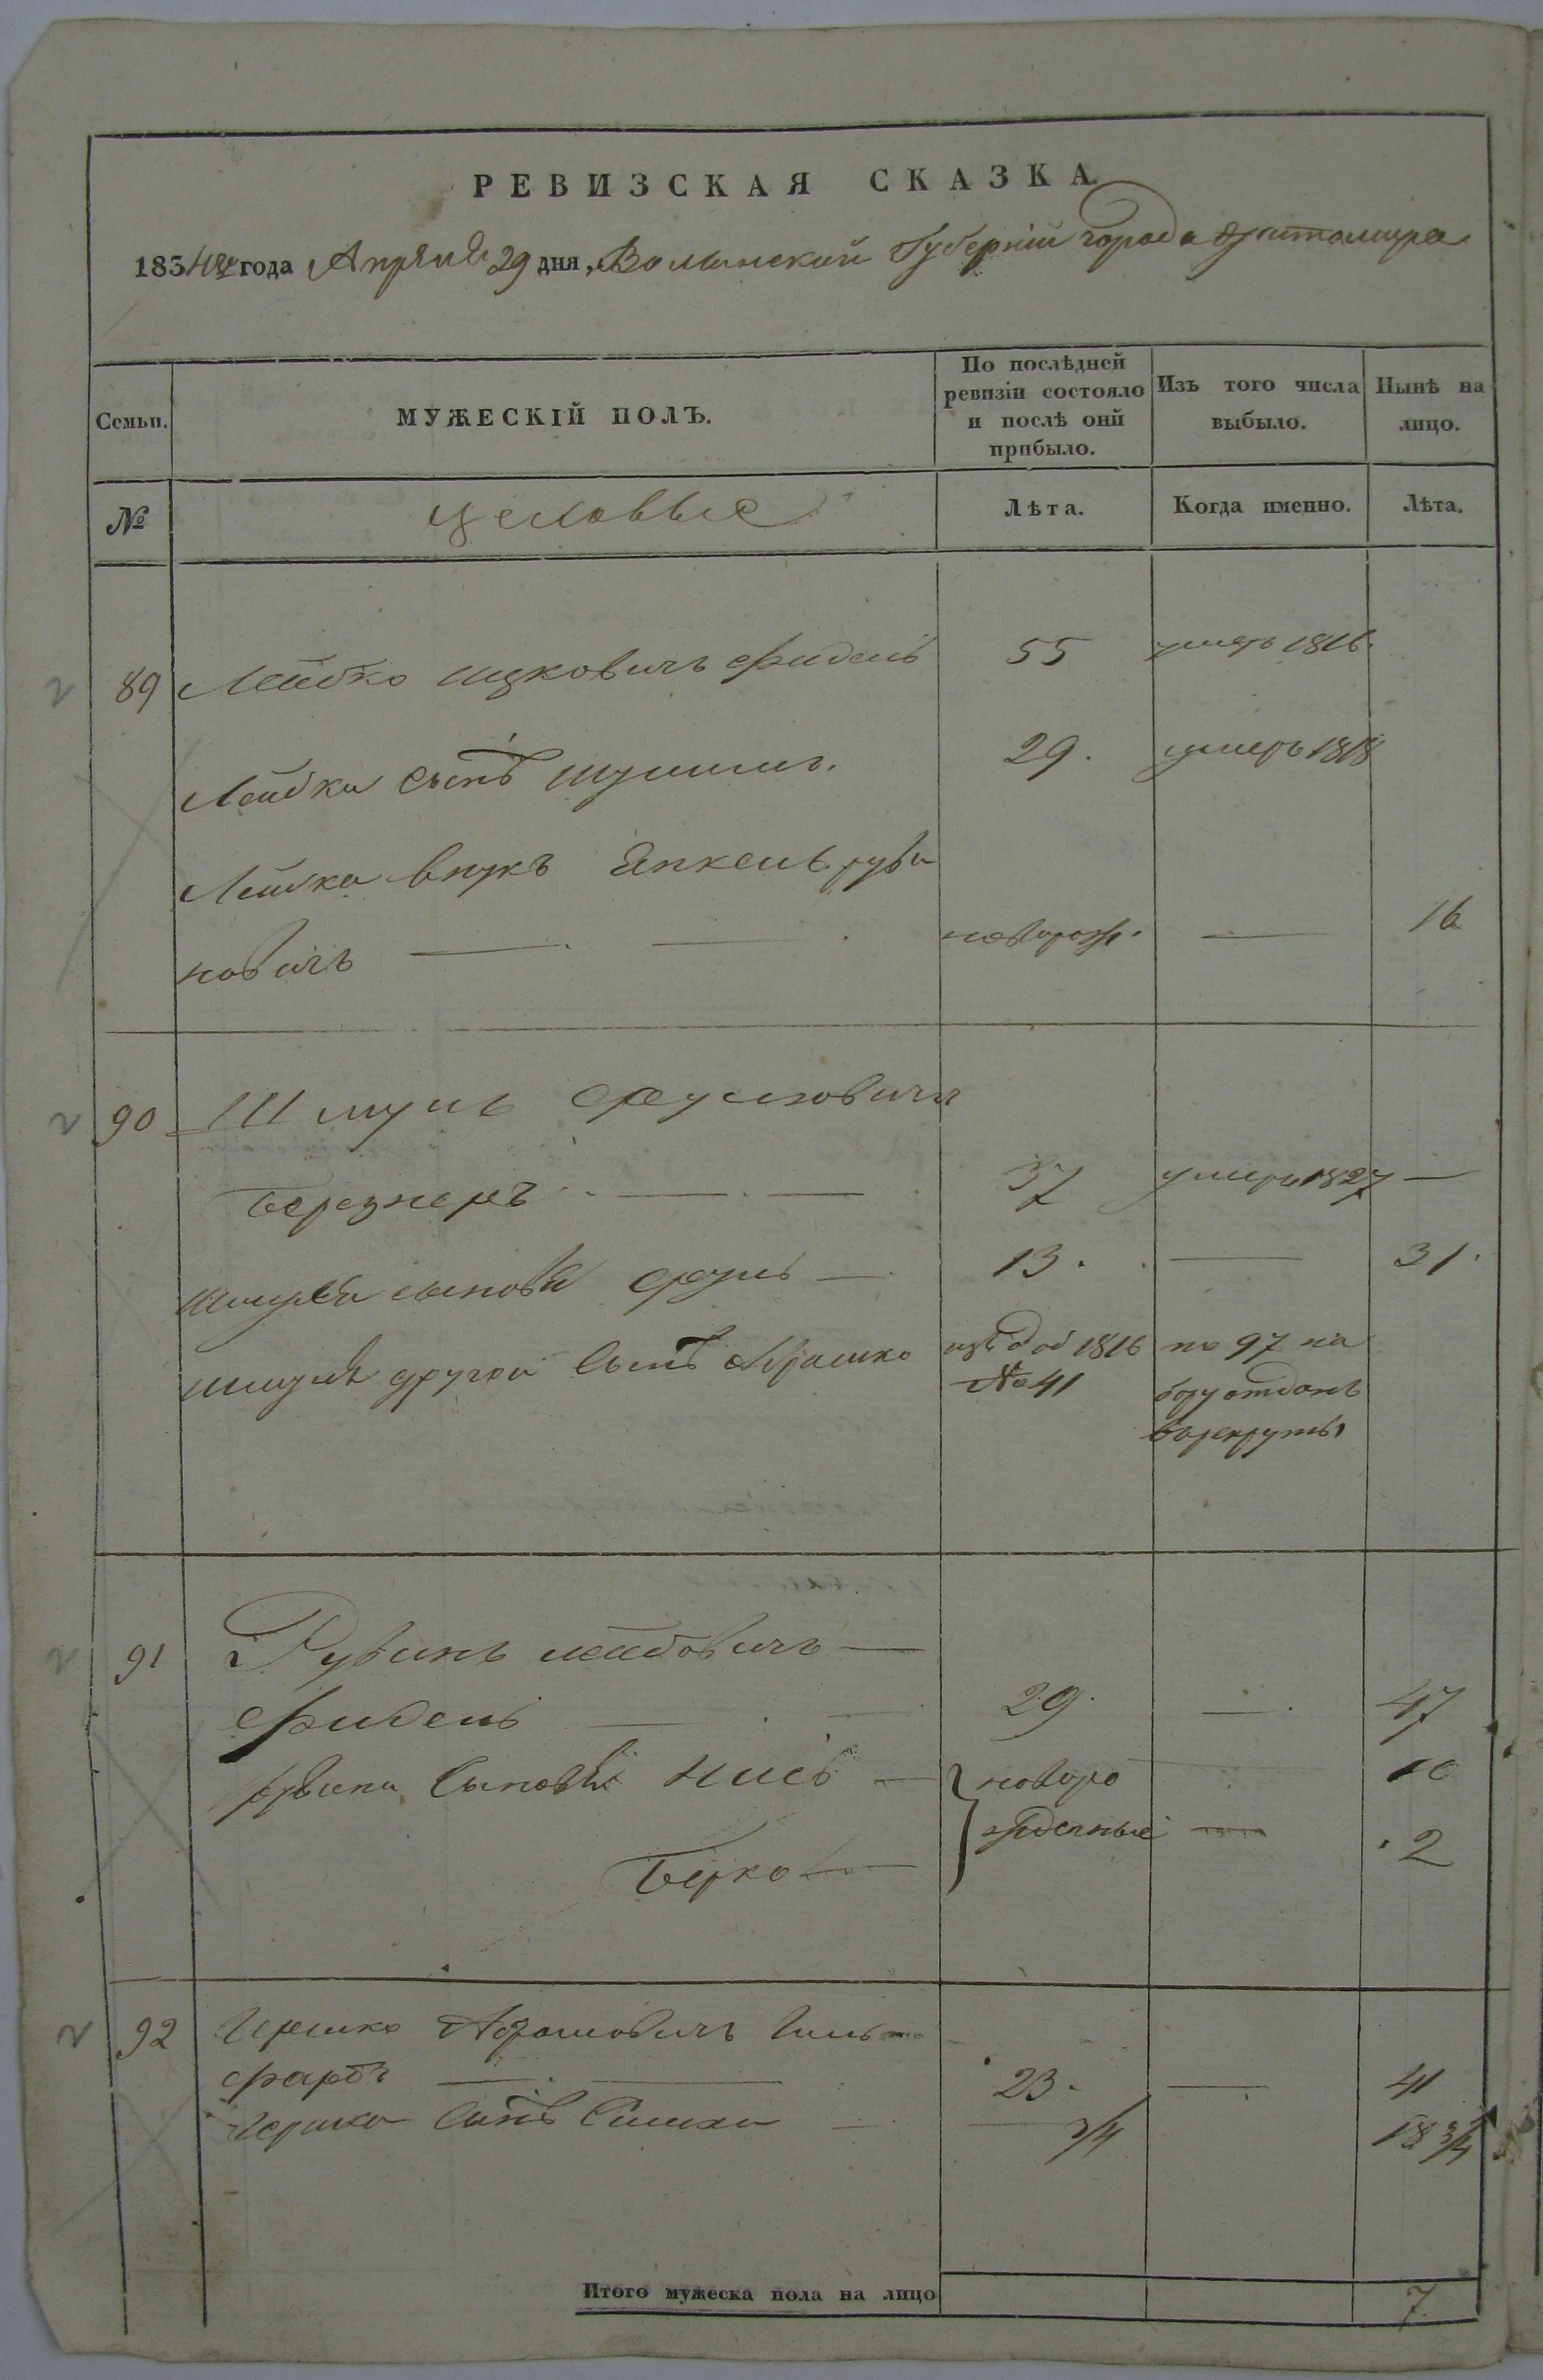 РЕВИЗСКАЯ СКАЗКА
1834го года Апреля 29 дня, Волынской Губерніи города Житомира
Семьи.
МУЖЕСКІЙ ПОЛЪ.
По послѣдней ревизіи состояло и послѣ онй прибыло.
Изъ того числа выбыло.
Нынѣ на лицо.
№
Цеховые
Лѣта.
Когда именно.
Лѣта.
2 89 Лейбко Ицковичъ Фидель 55 умеръ 1816.
Лейбки сынъ 29. умеръ 1818
Лейбка внукъ Янкель руви
новичъ — — новорож. — 16
2 90 Шмуль Сруловичъ
Березнеръ — — 37 умеръ 1827 —
Шмуля сыновья Сруль — 13. — 31.
Шмуля другой Сынъ Абрашко
изъ доб 1816
№ 41
по 97 на
бору отданъ
в рекруты
2 91 Рувинъ лейбовичъ —
Фидель — — 29. — 47
рувина Сыновья Нисъ — новоро 10
Берко — жденные — 2
2 92 Гершко Абрамовичъ
фарбъ — — 23. — 41
Гершка Сынъ Симха — 3/4 18 3/4
Итого мужеска пола на лицо 7